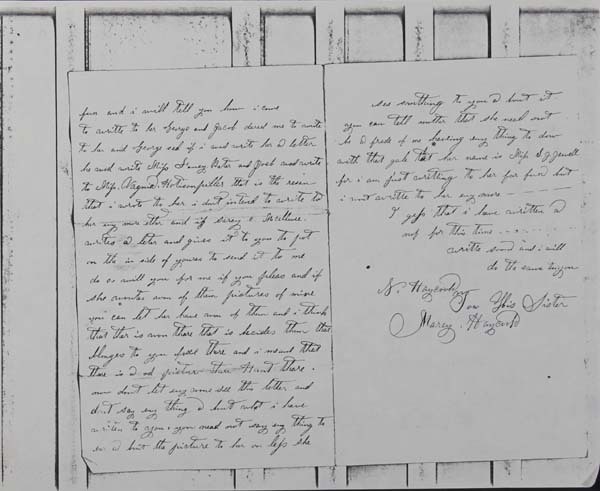 fun and i will tell you how i come
to write to her George and Jacob dered me to write
to her and George sed if i wood write her a letter
he wood write Miss Haney Hater and Jacob wood write
to Miss that is the reson
that i write to her i dont intend to write to
her eny more etter and if Sarey e
writes a leter and gives it to you to put
on the in side of youres to send it to me
do so will you for me if you pleas and if
she wontes won of them pictures of mine
you can let her have won of them and i think
that thar is won thare that is besides them that
blongs to you over thare and i meand that
thare is a od picture thare Haint thare.
now dont let eny wone see this letter and
dont say eny thing a bout what i have
writen to you. you nead not say eny thing to
her a bout the picture to her on less she
ses somthing to you a bout it
you can tell mutter that she need not
be a frade of me having eny thing to dow
with that gale that her name is Miss S J Jewell
for i am just writting to her for fun but
i wont write to her eny more
I gess that i have written a
nuf for this time
write soon and i will
do the same
N. Haycock
To Yhis Sister
Marey Haycock